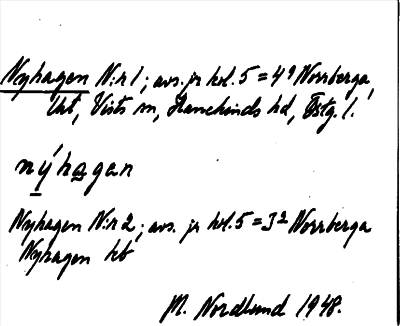 Nyhagen N:r 1; avs. jr kol. 5 = 4⁹ Norrberga,
Vists sn, Hanekinds hd, Östg. l.
nýhagan
Nyhagen N:r 2; avs. jr kol. 5 = 3² Norrberga
Nyhagen hb
M. Nordlund 1948.